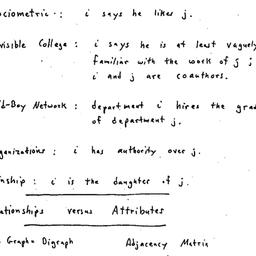 ociometric : i says he likes j.
visible College : i says he is at least vaguely
familiar with the work of j ;
i and j are coauthors.
d-Boy Network : department i hires the grad
of department j.
ganizations : i has authority over j.
nship : i is the daughter of j.
ationships versus Attributes
Graph Digraph Adjacency Matrix